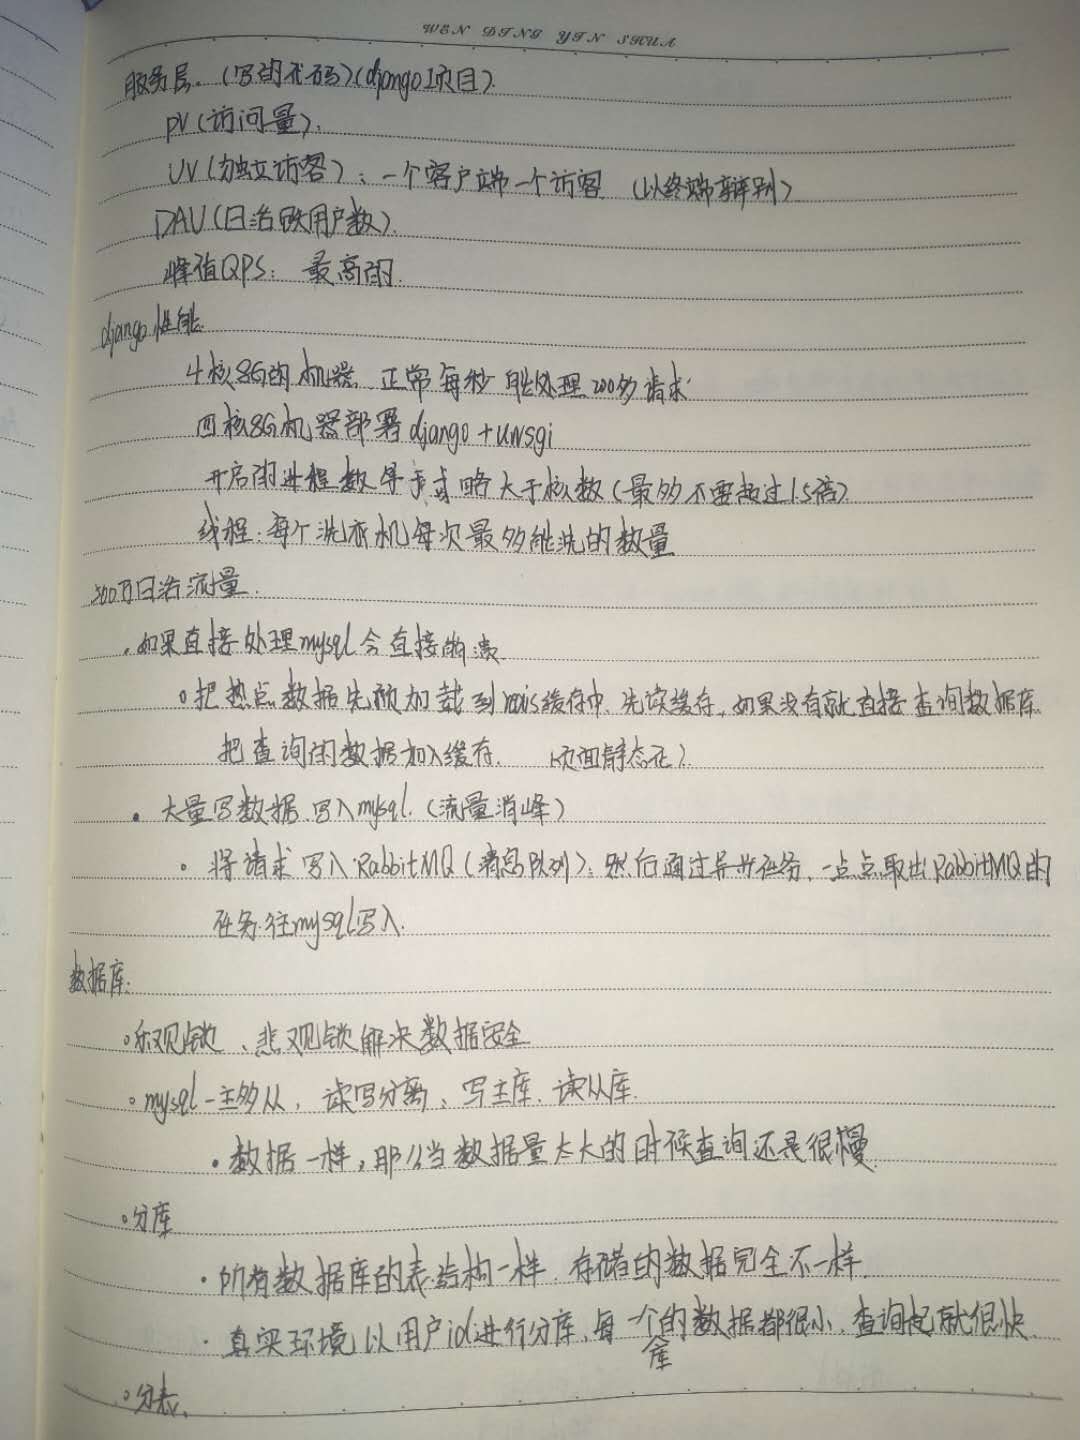 WEN DING YIN SHUA
服务层.（写的代码）（django项目）.
PV（访问量）.
UV（独立访客）：一个客户端一个访客（以终端辩别）
DAU（日活跃用户数）.
峰值QPS：最高的.
django性能.
4核8G的机器, 正常每秒能处理200多请求
四核8G机器部署django+uwsgi
开启的进程数等于或略大于核数（最多不要超过1.5倍）
线程：每个洗衣机每次最多能洗的数量
300万日活流量.
·如果直接处理mysql会直接崩溃
。把热点数据先预加载到redis缓存中, 先读缓存, 如果没有就直接查询数据库
把查询的数据加入缓存. （页面静态化）.
· 大量写数据, 写入mysql.（流量消峰）
· 将请求写入RabbitMQ（消息队列）, 然后通过异步任务, 一点点取出RabbitMQ的
任务往mysql写入.
数据库:
。乐观锁、悲观锁解决数据安全
。mysql一主多从, 读写分离, 写主库, 读从库.
· 数据一样, 那么当数据量太大的时候查询还是很慢
。分库
· 所有数据库的表结构一样, 存储的数据完全不一样.
· 真实环境以用户id进行分库, 每一个库的数据都很小, 查询起就很快.
。分表.